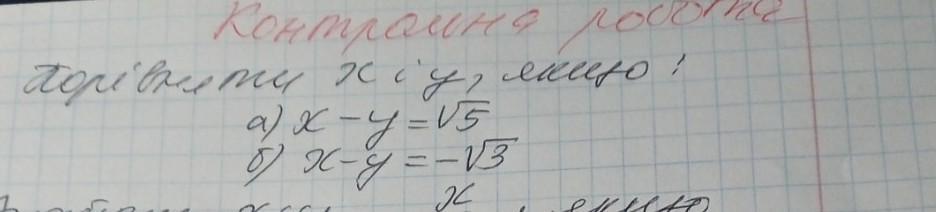 Контрольна робота
Порівняти x і y, якщо:
а) x - y = √5
б) x - y = -√3
x , якщо